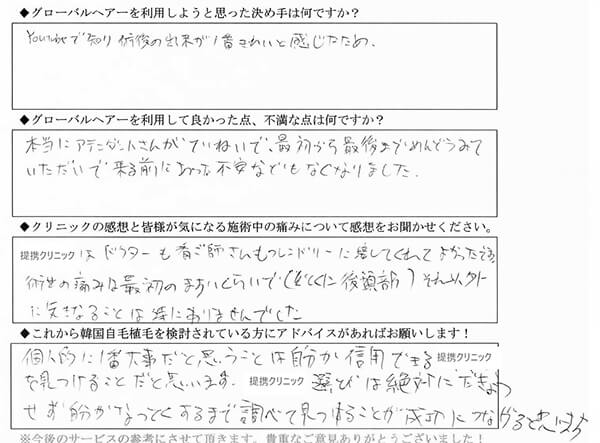 ◆グローバルヘアーを利用しようと思った決め手は何ですか?
Youtubeで知り術後の出来が1番きれいと感じたため。
◆グローバルヘアーを利用して良かった点、不満な点は何ですか?
本当にアテンダントさんがていねいで、最初から最後までめんどうみて
いただいて来る前にあった不安などもなくなりました。
◆クリニックの感想と皆様が気になる施術中の痛みについて感想をお聞かせください。
提携クリニックはドクターも看ご師さんもフレンドリーに接してくれてよかったです
術中の痛みは最初のますいくらいで(とくに後頭部)それ以外
に気になることは特にありませんでした
◆これから韓国自毛植毛を検討されている方にアドバイスがあればお願いします!
個人的に1番大事だと思うことは自分が信用できる提携クリニック
を見つけることだと思います。提携クリニック選びは絶対にだきょう
せず自分がなっとくするまで調べて見つけることが成功につながると
※今後のサービスの参考にさせて頂きます。貴重なご意見ありがとうございました!